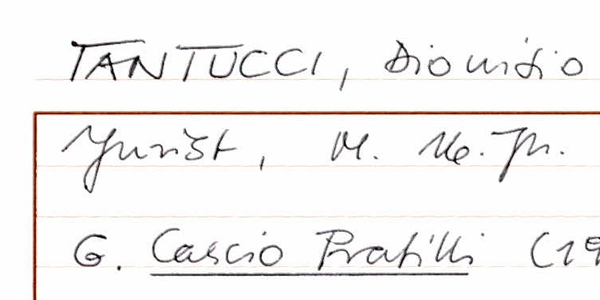 TANTUCCI, Dionisio
Jurist, M. 16. Jh.
G. Cascio Pratilli (19